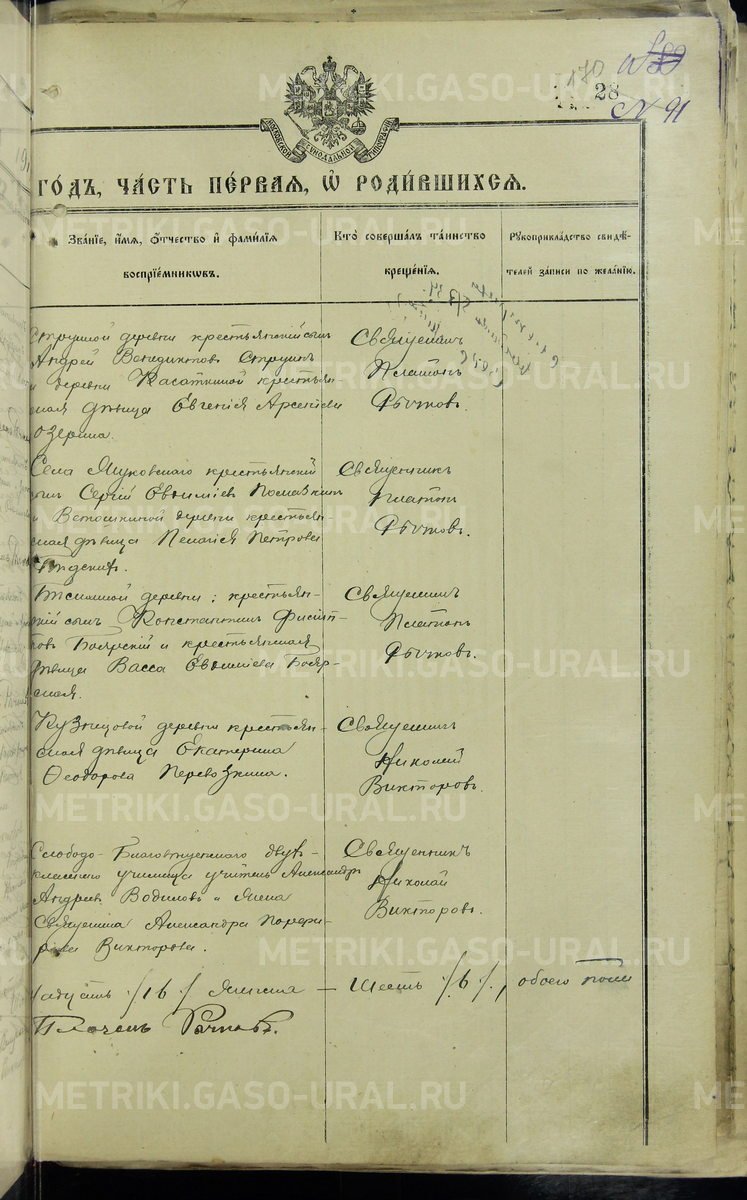 170
28
N 91
МОСКОВСКОЙ СѴНОДАЛЬНОЙ ТИПОГРАФІИ
ГО́ДЪ, ЧА́СТЬ ПЕ́РВАЯ, Ѡ РОДИ́ВШИХСЯ.
Зва́нїе, и҆́мя, ѻ҆́тчество и҆ фами́лїя
воспрїе́мниковъ.
Кто̀ соверша́лъ та́инство
креще́нїя.
Рꙋкоприкла́дство свидѣ́-
телей за́писи по жела́нїю.
деревни крестьянскій сынъ
Андрей Венедиктовъ
и деревни Касаткиной крестьян-
ская дѣвица Евгенія Арсеніева
Озерина.
Священникъ
Платонъ
Рычковъ.
Села крестьянскій
сынъ Сергій Евѳиміевъ
и Ветошкиной деревни крестьян-
ская дѣвица Пелагія Петрова
Священникъ
Платонъ
Рычковъ.
деревни: крестьян-
скій сынъ Константинъ Филип-
повъ Боярскій и крестьянская
дѣвица Васса Евѳиміева Бояр-
ская.
Священникъ
Платонъ
Рычковъ.
Кузнецовой деревни крестьян-
ская дѣвица Екатерина
Ѳеодорова Перевозкина.
Священникъ
Николай
Викторовъ.
Слободо-Благовѣщенскаго двух-
класснаго училища учитель Александръ
Андреевъ Водиловъ и жена
Священника Александра Порфи-
рьева Викторова.
Священникъ
Николай
Викторовъ.
/16/ женска — Шесть /6/, обоего пола
Рычковъ.
METRIKI.GASO-URAL.RU